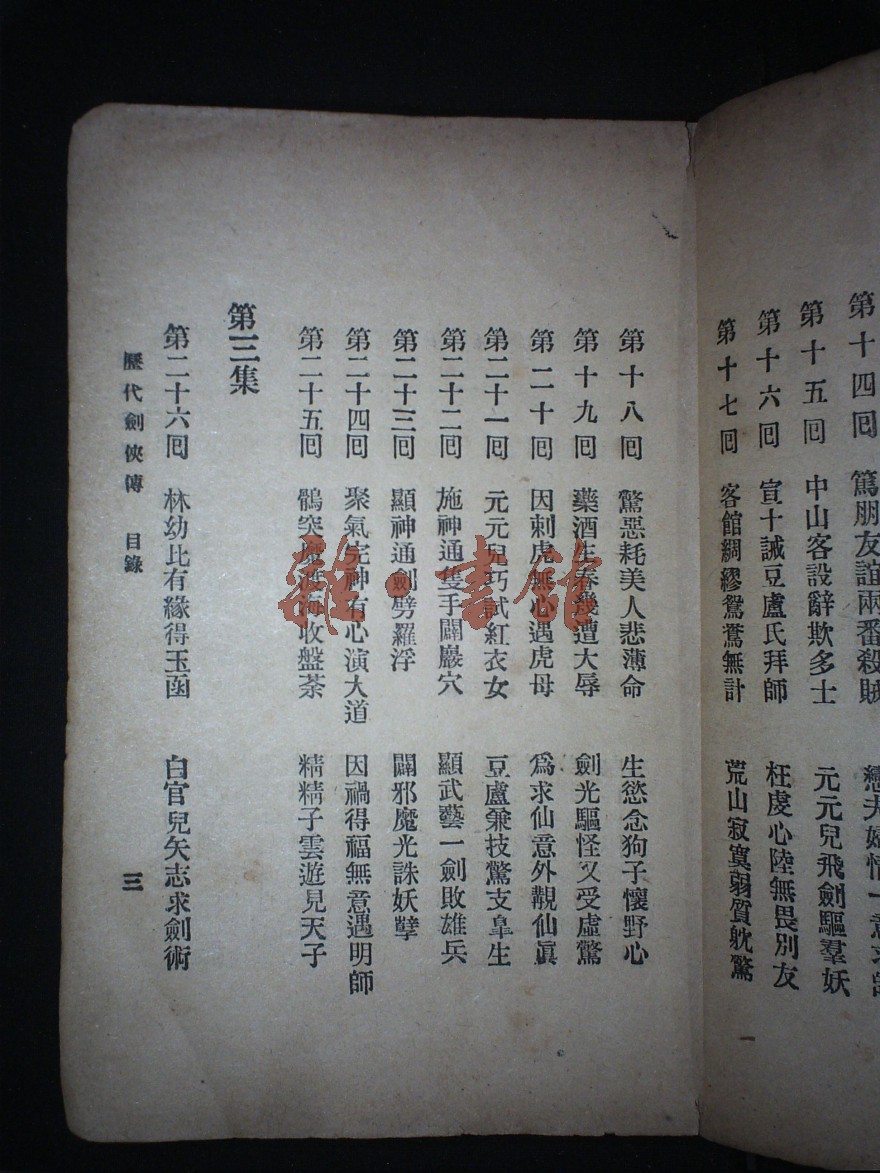 第十四囘 篤朋友誼兩番殺賊
第十五囘 中山客設辭欺多士 元元兒飛劍驅羣妖
第十六囘 宣十誡豆盧氏拜師 枉虔心陸無畏別友
第十七囘 客館綢繆鴛鴦無計 荒山寂寞弱質躭驚
第十八囘 驚惡耗美人悲薄命 生慾念狗子懷野心
第十九囘 藥酒生春幾遭大辱 劍光驅怪又受虛驚
第二十囘 因刺虎無心遇虎母 爲求仙意外覩仙眞
第二十一囘 元元兒巧試紅衣女 豆盧兼技驚支臯生
第二十二囘 施神通隻手闢巖穴 顯武藝一劍敗雄兵
第二十三囘 顯神通劍劈羅浮 闢邪魔光誅妖孽
第二十四囘 聚氣完神有心演大道 因禍得福無意遇明師
第二十五囘 鶻突魔渡海收盤荼 精精子雲遊見天子
第三集
第二十六囘 林幼比有緣得玉函 白官兒矢志求劍術
歷代劍俠傳 目錄 三
雜·書館